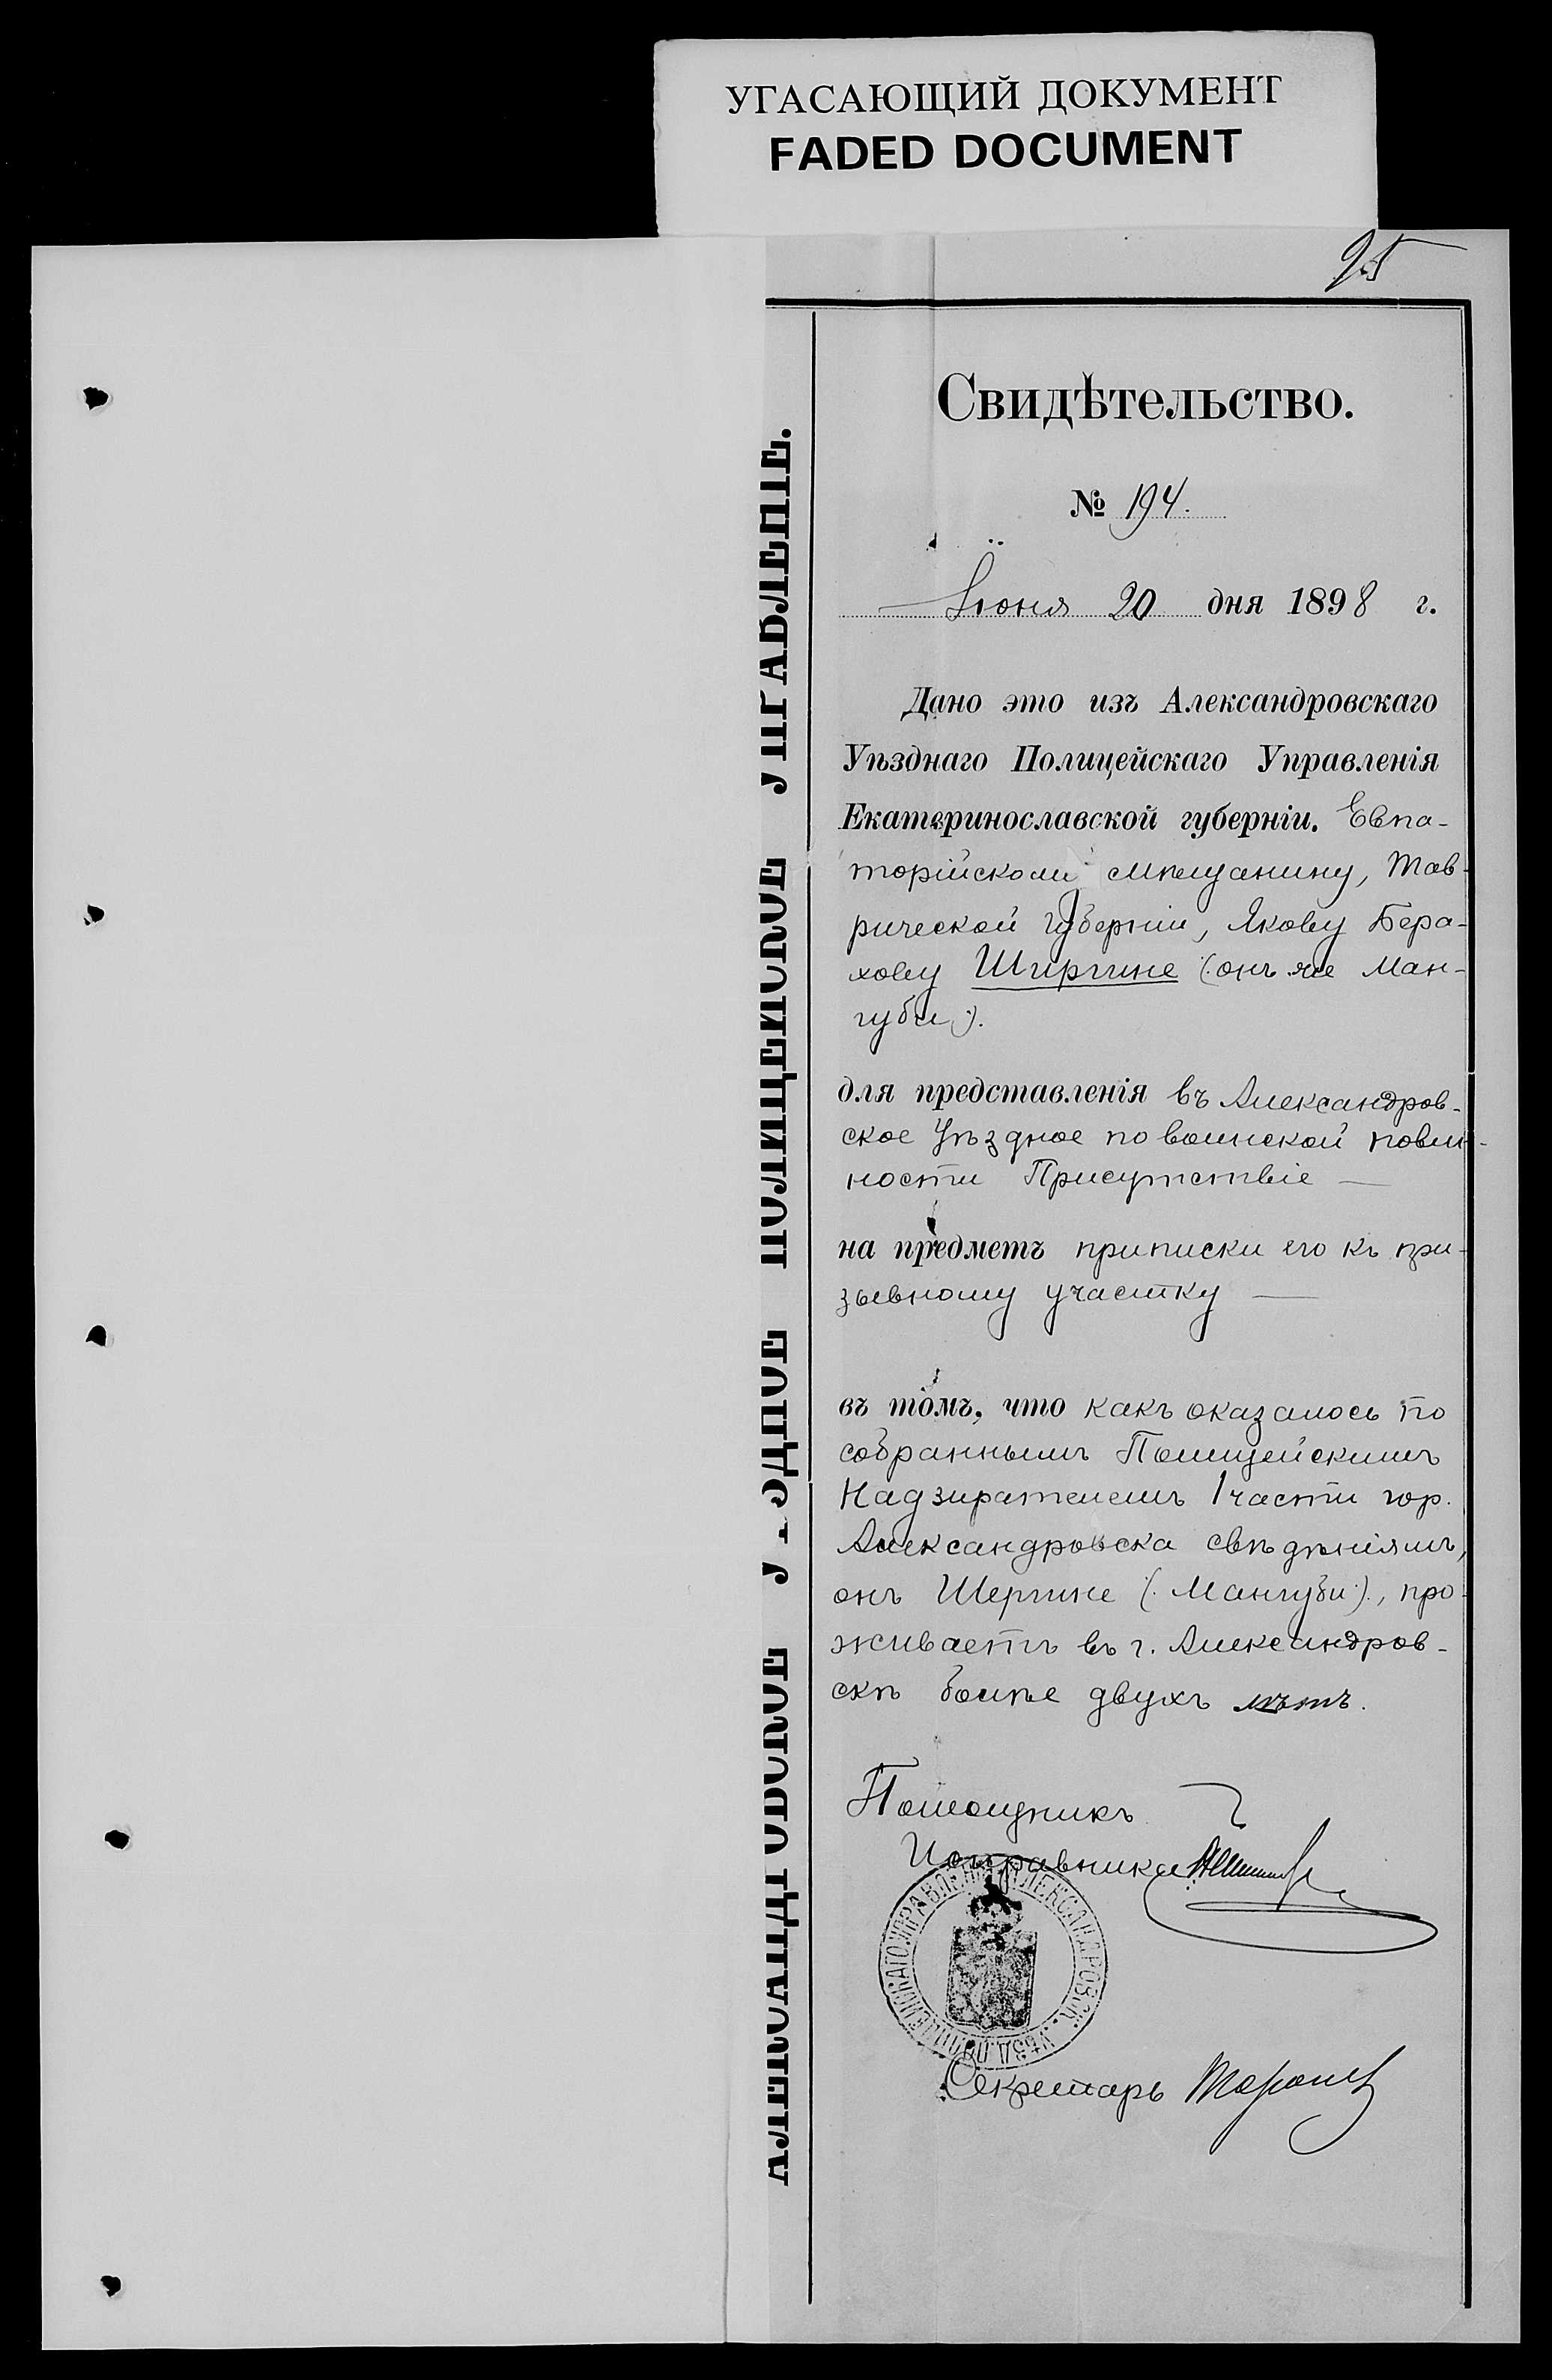 УГАСАЮЩИЙ ДОКУМЕНТ
FADED DOCUMENT
95
АЛЕКСАНДРОВСКОЕ УѢЗДНОЕ ПОЛИЦЕЙСКОЕ УПРАВЛЕНІЕ.
Свидѣтельство.
№ 194.
Іюня 20 дня 1898 г.
Дано это изъ Александровскаго
Уѣзднаго Полицейскаго Управленія
Екатеринославской губерніи. Евпа-
торійскому мѣщанину, Тав-
рической губерніи, Якову Бера-
хову Ширгине (:онъ же Ман-
губи:).
для представленія въ Александров-
ское Уѣздное по воинской повин-
ности Присутствіе —
на предметъ приписки его къ при-
зывному участку —
въ томъ, что какъ оказалось по
собраннымъ Полицейскимъ
Надзирателемъ 1 части гор.
Александровска свѣдѣніямъ,
онъ Шергине (:Мангуби:), про-
живаетъ въ г. Александров-
скѣ болѣе двухъ лѣтъ.
Помощникъ
Исправника
АЛЕКСАНДРОВСК. УѢЗД. ПОЛИЦЕЙСКАГО УПРАВЛЕНІЯ
Секретарь